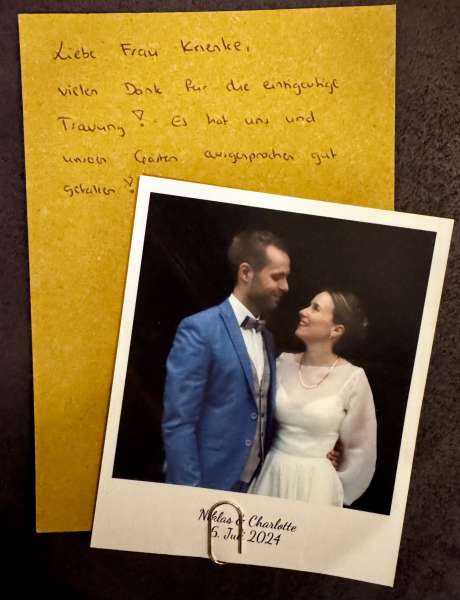 Liebe Frau Krienke,
vielen Dank für die einzigartige
Trauung! Es hat uns und
unseren Gästen ausgesprochen gut
gefallen!
Niklas & Charlotte
5. Juli 2024